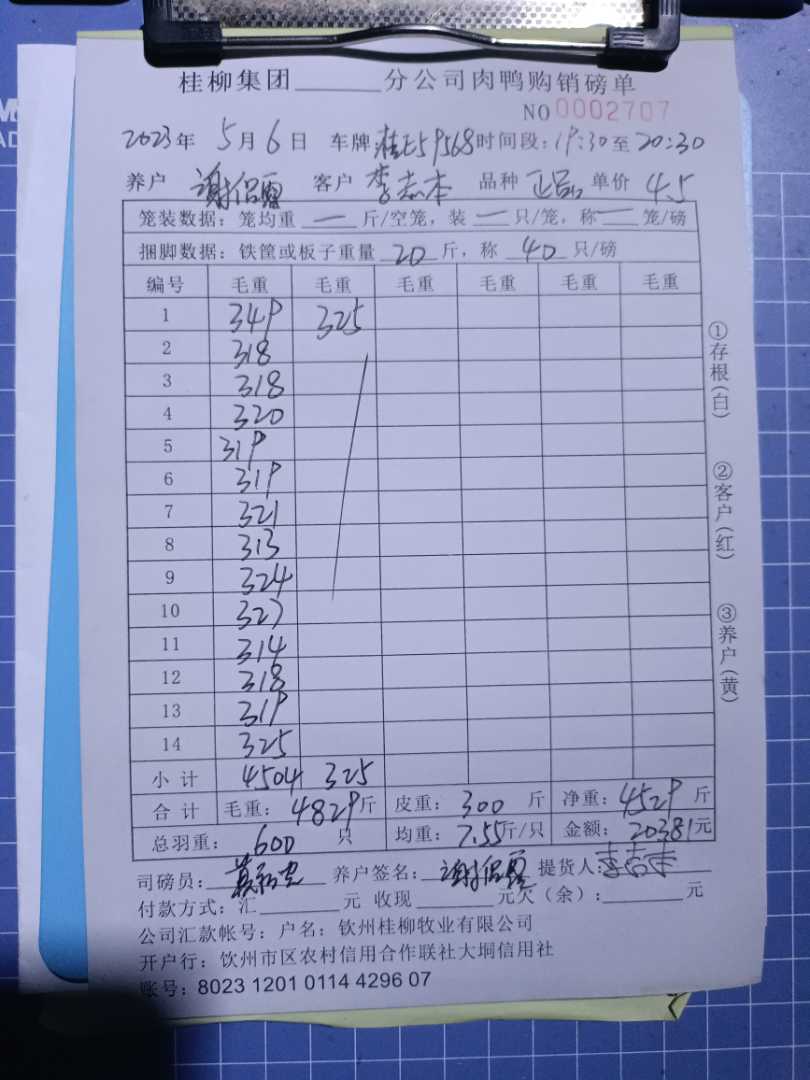 桂柳集团______分公司肉鸭购销磅单
NO 0002707
2023年 5月6日 车牌 桂E59568 时间段:19:30至20:30
养户 谢绍 客户 李志本 品种 正品 单价 4.5
笼装数据:笼均重 — 斤/空笼,装 — 只/笼,称 — 笼/磅
捆脚数据:铁筐或板子重量 20 斤,称 40 只/磅
编号 毛重 毛重 毛重 毛重 毛重 毛重
1 349 325
2 318
3 318
4 320
5 319
6 319
7 321
8 313
9 324
10 327
11 314
12 318
13 319
14 325
小计 4504 325
合计 毛重: 4829斤 皮重: 300 斤 净重: 4529 斤
总羽重: 600 只 均重: 7.55斤/只 金额: 20381元
司磅员: 养户签名: 谢绍 提货人: 李志本
付款方式:汇______元 收现______元欠(余):______元
公司汇款帐号:户名:钦州桂柳牧业有限公司
开户行:饮州市区农村信用合作联社大垌信用社
账号:8023 1201 0114 4296 07
①存根(白)
②客户(红)
③养户(黄)